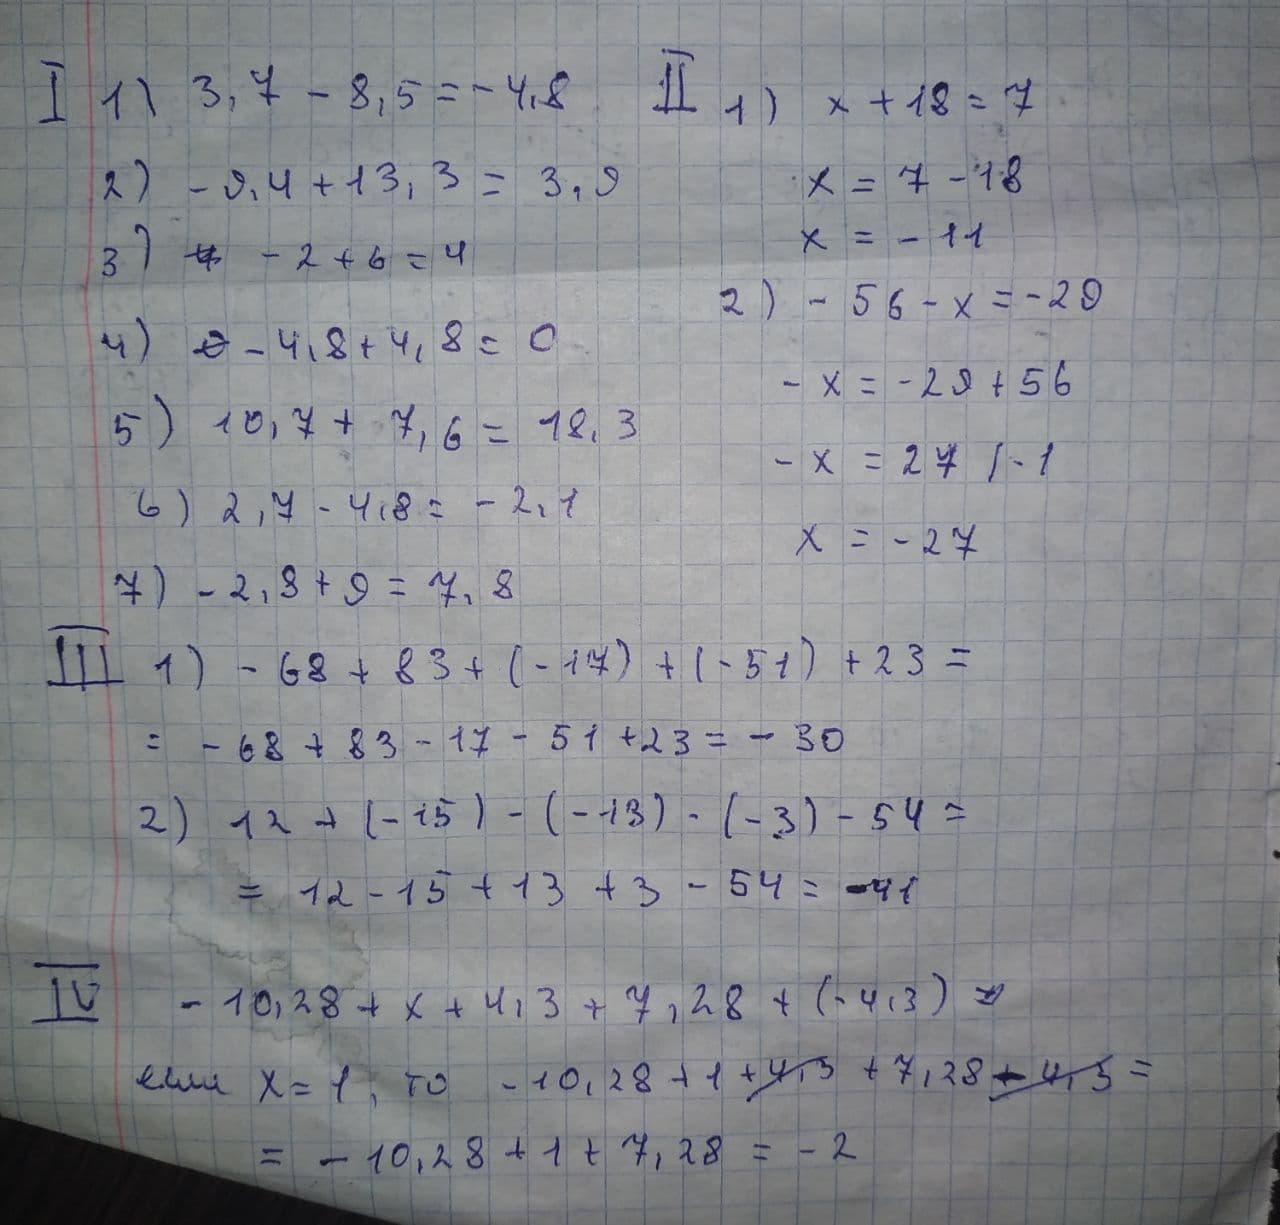 I 1) 3,7 - 8,5 = -4,8
2) -9,4 + 13,3 = 3,9
3) -2 + 6 = 4
4) -4,8 + 4,8 = 0
5) 10,7 + 7,6 = 18,3
6) 2,7 - 4,8 = -2,1
7) -2,8 + 9 = 7,8
II 1) x + 18 = 7
x = 7 - 18
x = -11
2) -56 - x = -29
-x = -29 + 56
-x = 27 / -1
x = -27
III 1) -68 + 83 + (-17) + (-51) + 23 =
= -68 + 83 - 17 - 51 + 23 = -30
2) 12 + (-15) - (-13) - (-3) - 54 =
= 12 - 15 + 13 + 3 - 54 = -41
IV -10,28 + x + 4,3 + 7,28 + (-4,3)
если x = 1, то -10,28 + 1 + 4,3 + 7,28 - 4,3 =
= -10,28 + 1 + 7,28 = -2